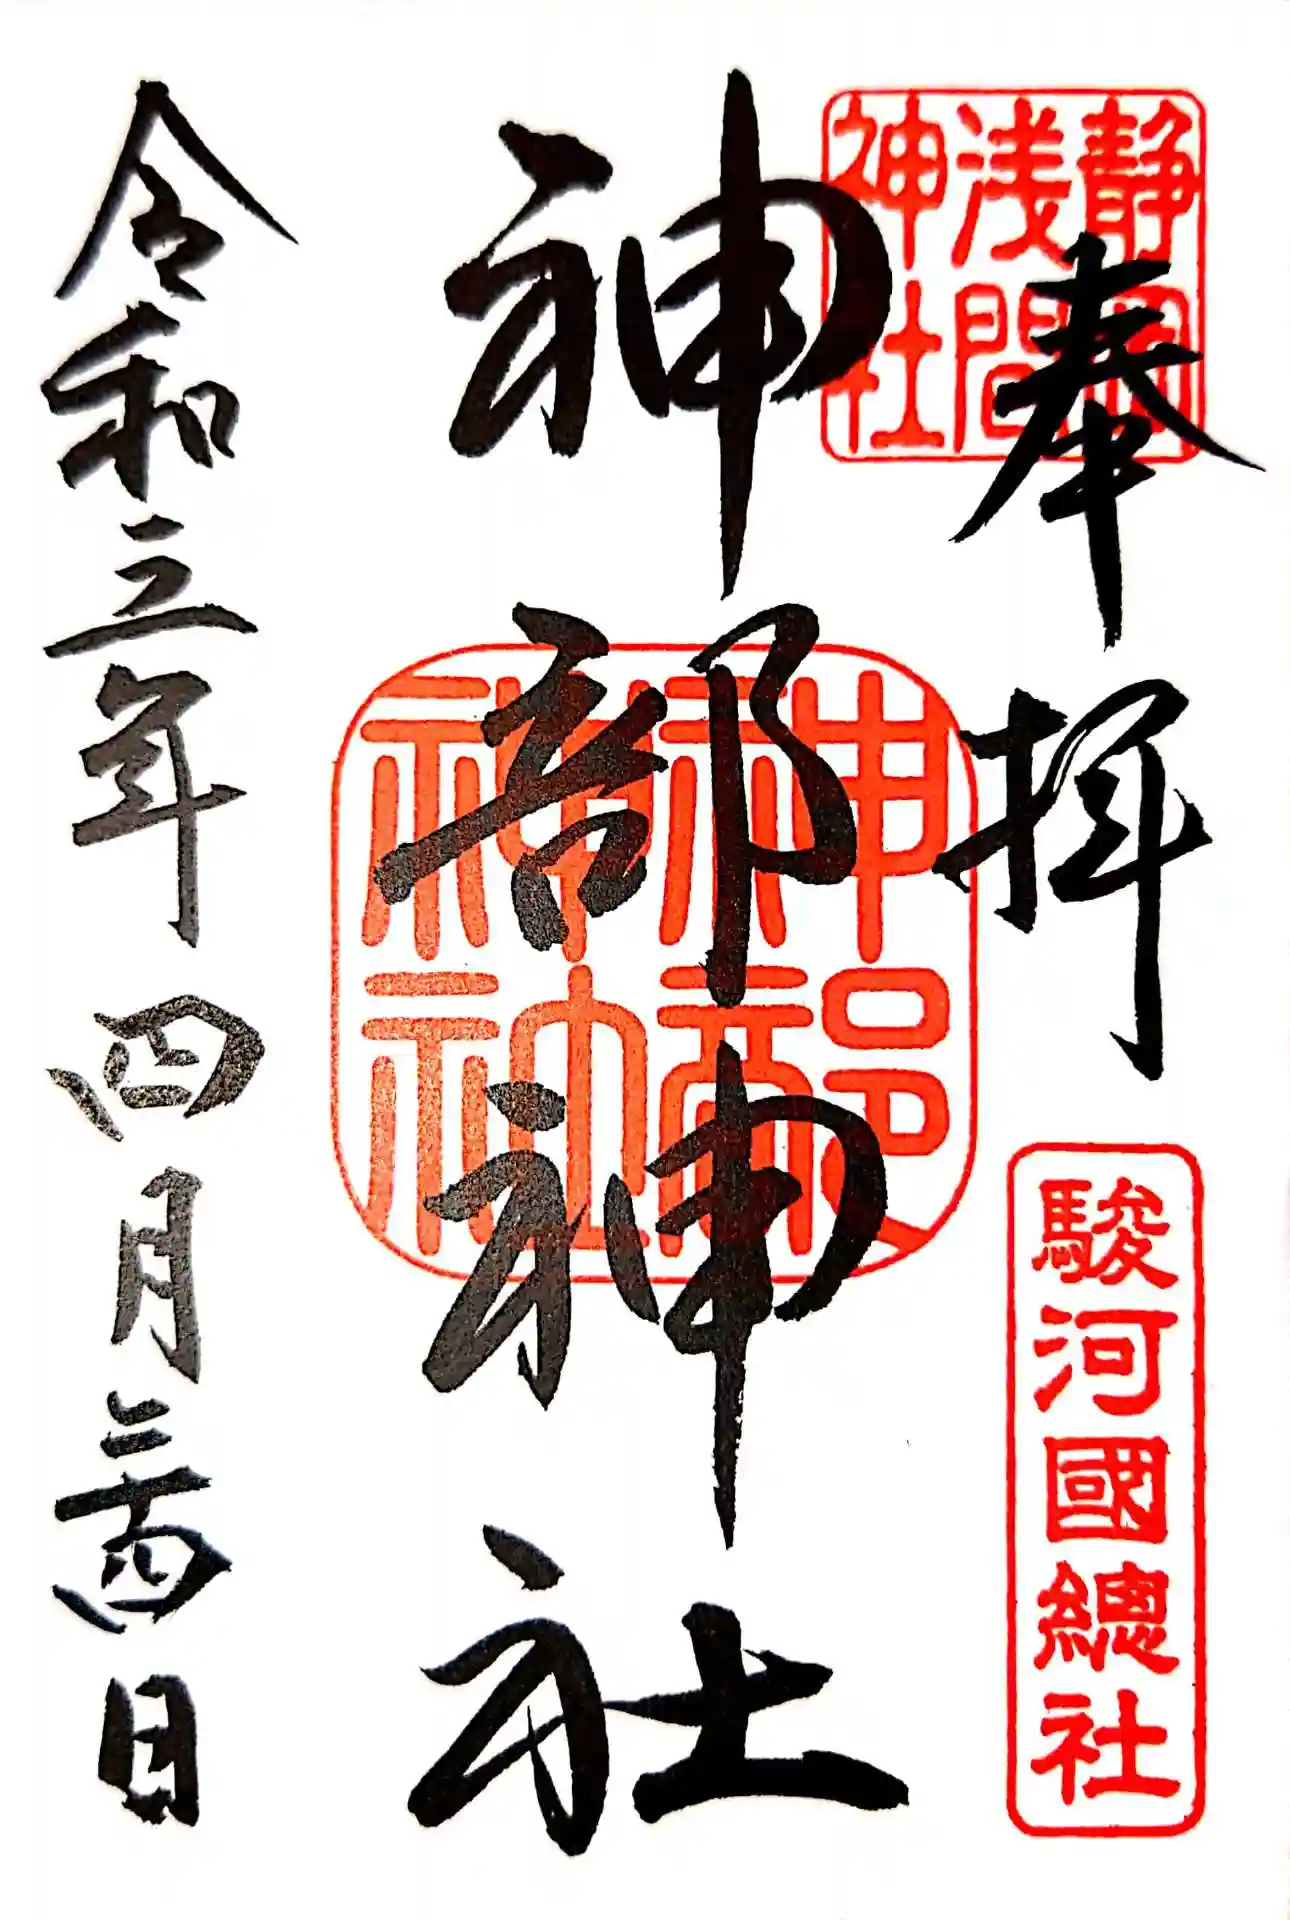 静岡
浅間
神社
奉拝
駿河國總社
神部神社
神部
神社
令和三年四月二十四日